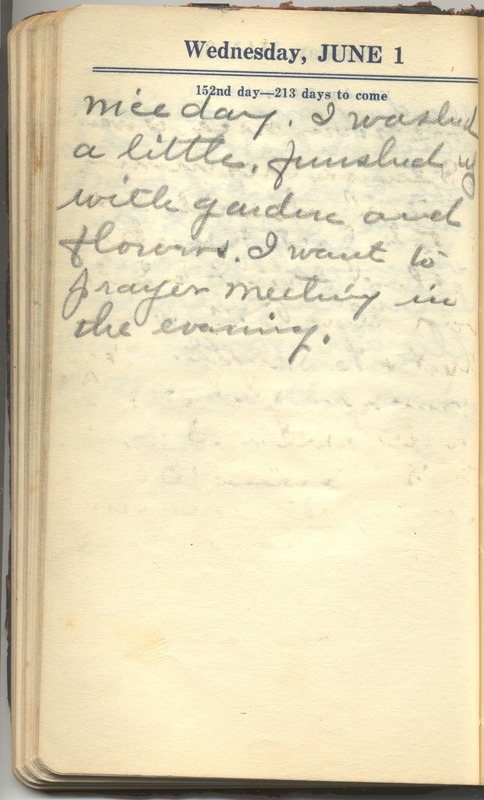 Wednesday, JUNE 1
152nd day—213 days to come
nice day. I washed
a little, finished up
with garden and
flowers. I want to
prayer meeting in
the evaning.